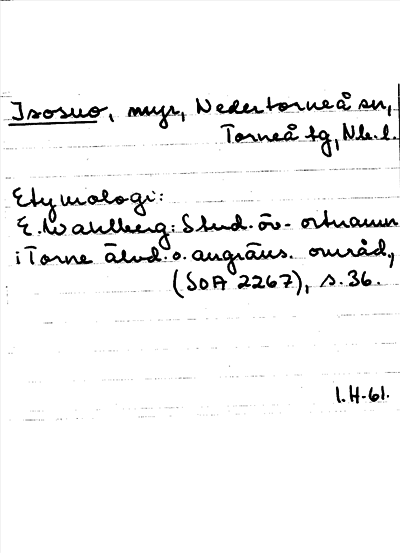 Isosuo, myr, Nedertorneå sn,
Torneå tg, Nb. l.
Etymologi:
E. Wahlberg: Stud. öv. ortnamn
i Torne älvd. o. angräns. område,
(SOA 2267), s. 36.
I.H-61.